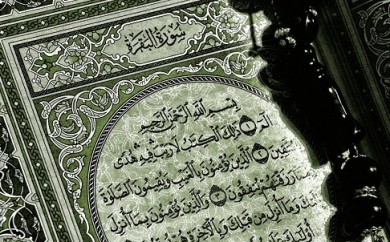 سُورَةُ البَقَرَةِ
بِسْمِ اللَّهِ الرَّحْمَٰنِ الرَّحِيمِ
الٓمٓ ۝١ ذَٰلِكَ الْكِتَٰبُ لَا رَيْبَ ۛ فِيهِ ۛ هُدًى
لِّلْمُتَّقِينَ ۝٢ الَّذِينَ يُؤْمِنُونَ بِالْغَيْبِ وَيُقِيمُونَ الصَّلَوٰةَ
وَمِمَّا رَزَقْنَٰهُمْ يُنفِقُونَ ۝٣ وَالَّذِينَ يُؤْمِنُونَ بِمَا أُنزِلَ
إِلَيْكَ وَمَا أُنزِلَ مِن قَبْلِكَ وَبِالْآخِرَةِ هُمْ